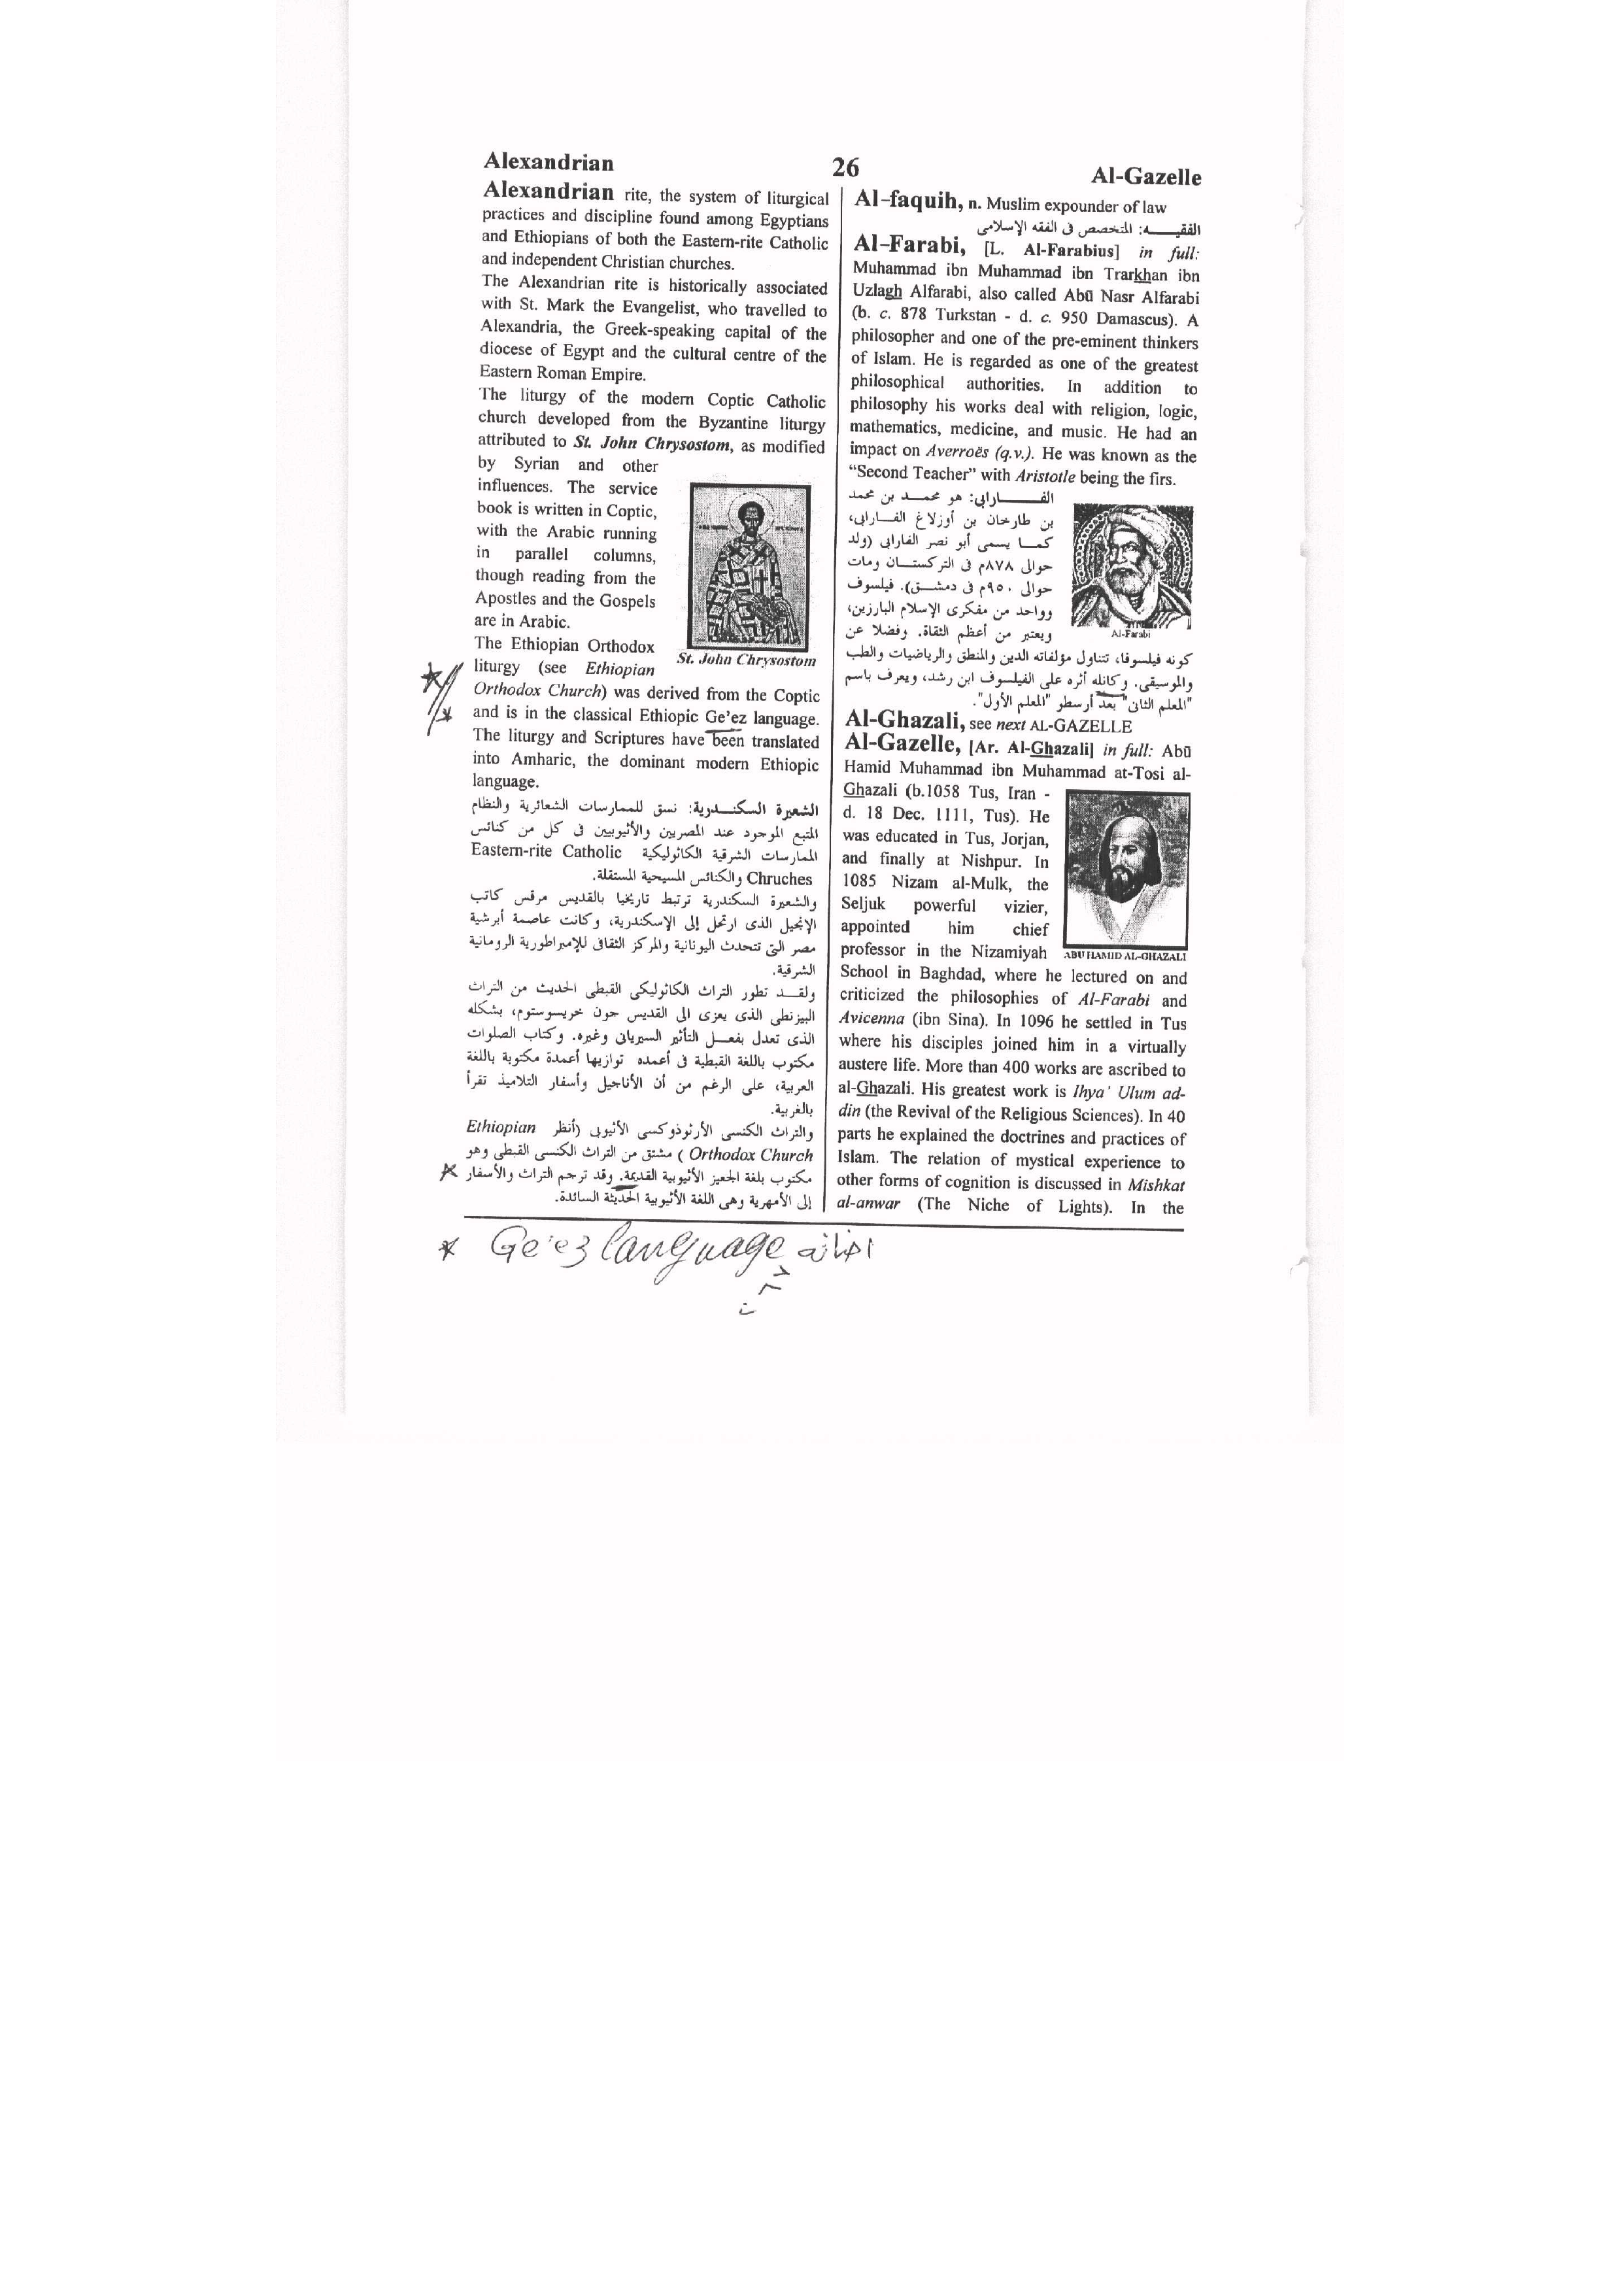 Alexandrian
26
Al-Gazelle
Alexandrian rite, the system of liturgical
practices and discipline found among Egyptians
and Ethiopians of both the Eastern-rite Catholic
and independent Christian churches.
The Alexandrian rite is historically associated
with St. Mark the Evangelist, who travelled to
Alexandria, the Greek-speaking capital of the
diocese of Egypt and the cultural centre of the
Eastern Roman Empire.
The liturgy of the modern Coptic Catholic
church developed from the Byzantine liturgy
attributed to St. John Chrysostom, as modified
by Syrian and other
influences. The service
book is written in Coptic,
with the Arabic running
in parallel columns,
though reading from the
Apostles and the Gospels
are in Arabic.
St. John Chrysostom
The Ethiopian Orthodox
liturgy (see Ethiopian
Orthodox Church) was derived from the Coptic
and is in the classical Ethiopic Ge'ez language.
The liturgy and Scriptures have been translated
into Amharic, the dominant modern Ethiopic
language.
الشعيرة السكندرية: نسق للممارسات الشعائرية والنظام
المتبع الموجود عند المصريين والأثيوبيين فى كل من كنائس
الممارسات الشرقية الكاثوليكية Eastern-rite Catholic
Chruches والكنائس المسيحية المستقلة.
والشعيرة السكندرية ترتبط تاريخيا بالقديس مرقس كاتب
الإنجيل الذى ارتحل إلى الإسكندرية، وكانت عاصمة أبرشية
مصر التى تتحدث اليونانية والمركز الثقافى للإمبراطورية الرومانية
الشرقية.
ولقد تطور التراث الكاثوليكى القبطى الحديث من التراث
البيزنطى الذى يعزى الى القديس جون خريسوستوم، بشكله
الذى تعدل بفعل التأثير السيريانى وغيره. وكتاب الصلوات
مكتوب باللغة القبطية فى أعمده توازيها أعمدة مكتوبة باللغة
العربية، على الرغم من أن الأناجيل وأسفار التلاميذ تقرأ
بالغربية.
والتراث الكنسى الأرثوذوكسى الأثيوبى (أنظر Ethiopian
Orthodox Church ) مشتق من التراث الكنسى القبطى وهو
مكتوب بلغة الجعيز الأثيوبية القديمة. وقد ترجم التراث والأسفار
إلى الأمهرية وهى اللغة الأثيوبية الحديثة السائدة.
Al-faquih, n. Muslim expounder of law
الفقيه: المتخصص فى الفقه الإسلامى
Al-Farabi, [L. Al-Farabius] in full:
Muhammad ibn Muhammad ibn Trarkhan ibn
Uzlagh Alfarabi, also called Abū Nasr Alfarabi
(b. c. 878 Turkstan - d. c. 950 Damascus). A
philosopher and one of the pre-eminent thinkers
of Islam. He is regarded as one of the greatest
philosophical authorities. In addition to
philosophy his works deal with religion, logic,
mathematics, medicine, and music. He had an
impact on Averroës (q.v.). He was known as the
“Second Teacher” with Aristotle being the firs.
الفارابى: هو محمد بن محمد
بن طارخان بن أوزلاغ الفارابى،
كما يسمى أبو نصر الفارابى (ولد
حوالى ٨٧٨م فى التركستان ومات
حوالى ٩٥٠م فى دمشق). فيلسوف
وواحد من مفكرى الإسلام البارزين،
ويعتبر من أعظم الثقاة. وفضلا عن
Al-Farabi
كونه فيلسوفا، تتناول مؤلفاته الدين والمنطق والرياضيات والطب
والموسيقى. وكانله أثره على الفيلسوف ابن رشد، ويعرف باسم
"المعلم الثانى" بعد أرسطو "المعلم الأول".
Al-Ghazali, see next AL-GAZELLE
Al-Gazelle, [Ar. Al-Ghazali] in full: Abū
Hamid Muhammad ibn Muhammad at-Tosi al-
Ghazali (b.1058 Tus, Iran -
d. 18 Dec. 1111, Tus). He
was educated in Tus, Jorjan,
and finally at Nishpur. In
1085 Nizam al-Mulk, the
Seljuk powerful vizier,
appointed him chief
professor in the Nizamiyah
ABU HAMID AL-GHAZALI
School in Baghdad, where he lectured on and
criticized the philosophies of Al-Farabi and
Avicenna (ibn Sina). In 1096 he settled in Tus
where his disciples joined him in a virtually
austere life. More than 400 works are ascribed to
al-Ghazali. His greatest work is Ihya' Ulum ad-
din (the Revival of the Religious Sciences). In 40
parts he explained the doctrines and practices of
Islam. The relation of mystical experience to
other forms of cognition is discussed in Mishkat
al-anwar (The Niche of Lights). In the
* Ge'ez language اضافة